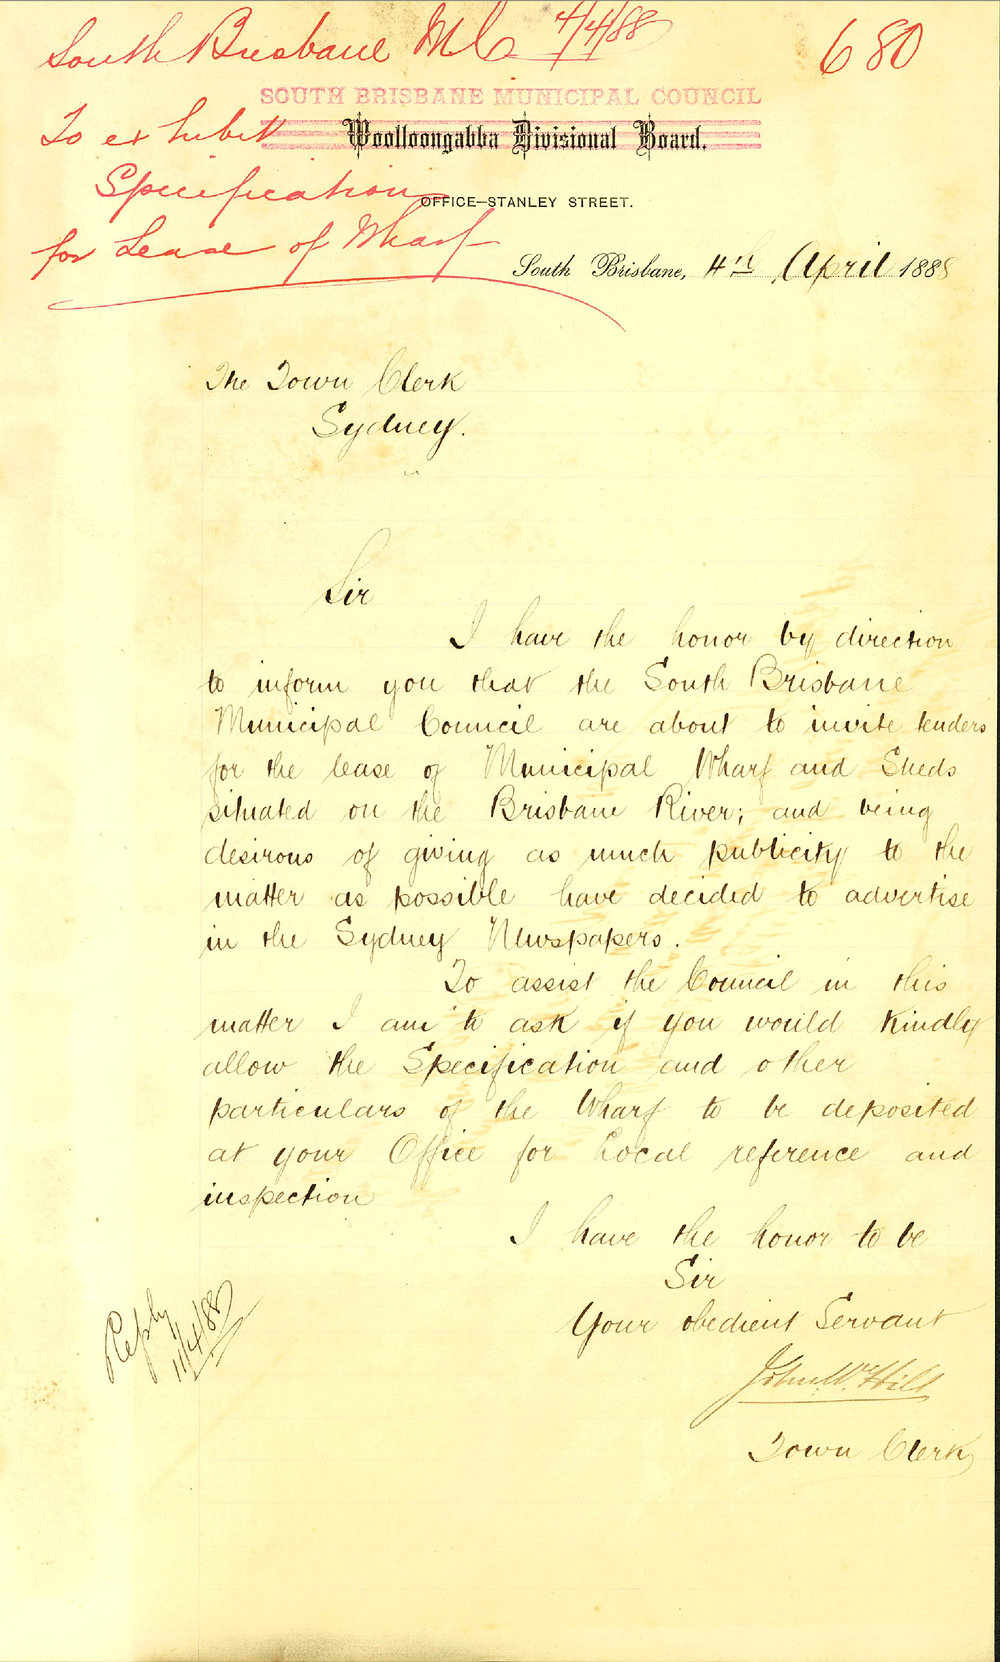 South Brisbane M C 4/4/88
680
To exhibit
Specification
for Lease of Wharf
SOUTH BRISBANE MUNICIPAL COUNCIL
Woolloongabba Divisional Board.
OFFICE—STANLEY STREET.
South Brisbane, 4th April 1888
The Town Clerk
Sydney.
Sir
I have the honor by direction
to inform you that the South Brisbane
Municipal Council are about to invite tenders
for the lease of Municipal Wharf and Sheds
situated on the Brisbane River; and being
desirous of giving as much publicity to the
matter as possible have decided to advertise
in the Sydney Newspapers.
To assist the Council in this
matter I am to ask if you would kindly
allow the Specification and other
particulars of the Wharf to be deposited
at your Office for Local reference and
inspection
I have the honor to be
Sir
Your obedient Servant
John Wm. Hill
Town Clerk
Reply
11/4/88